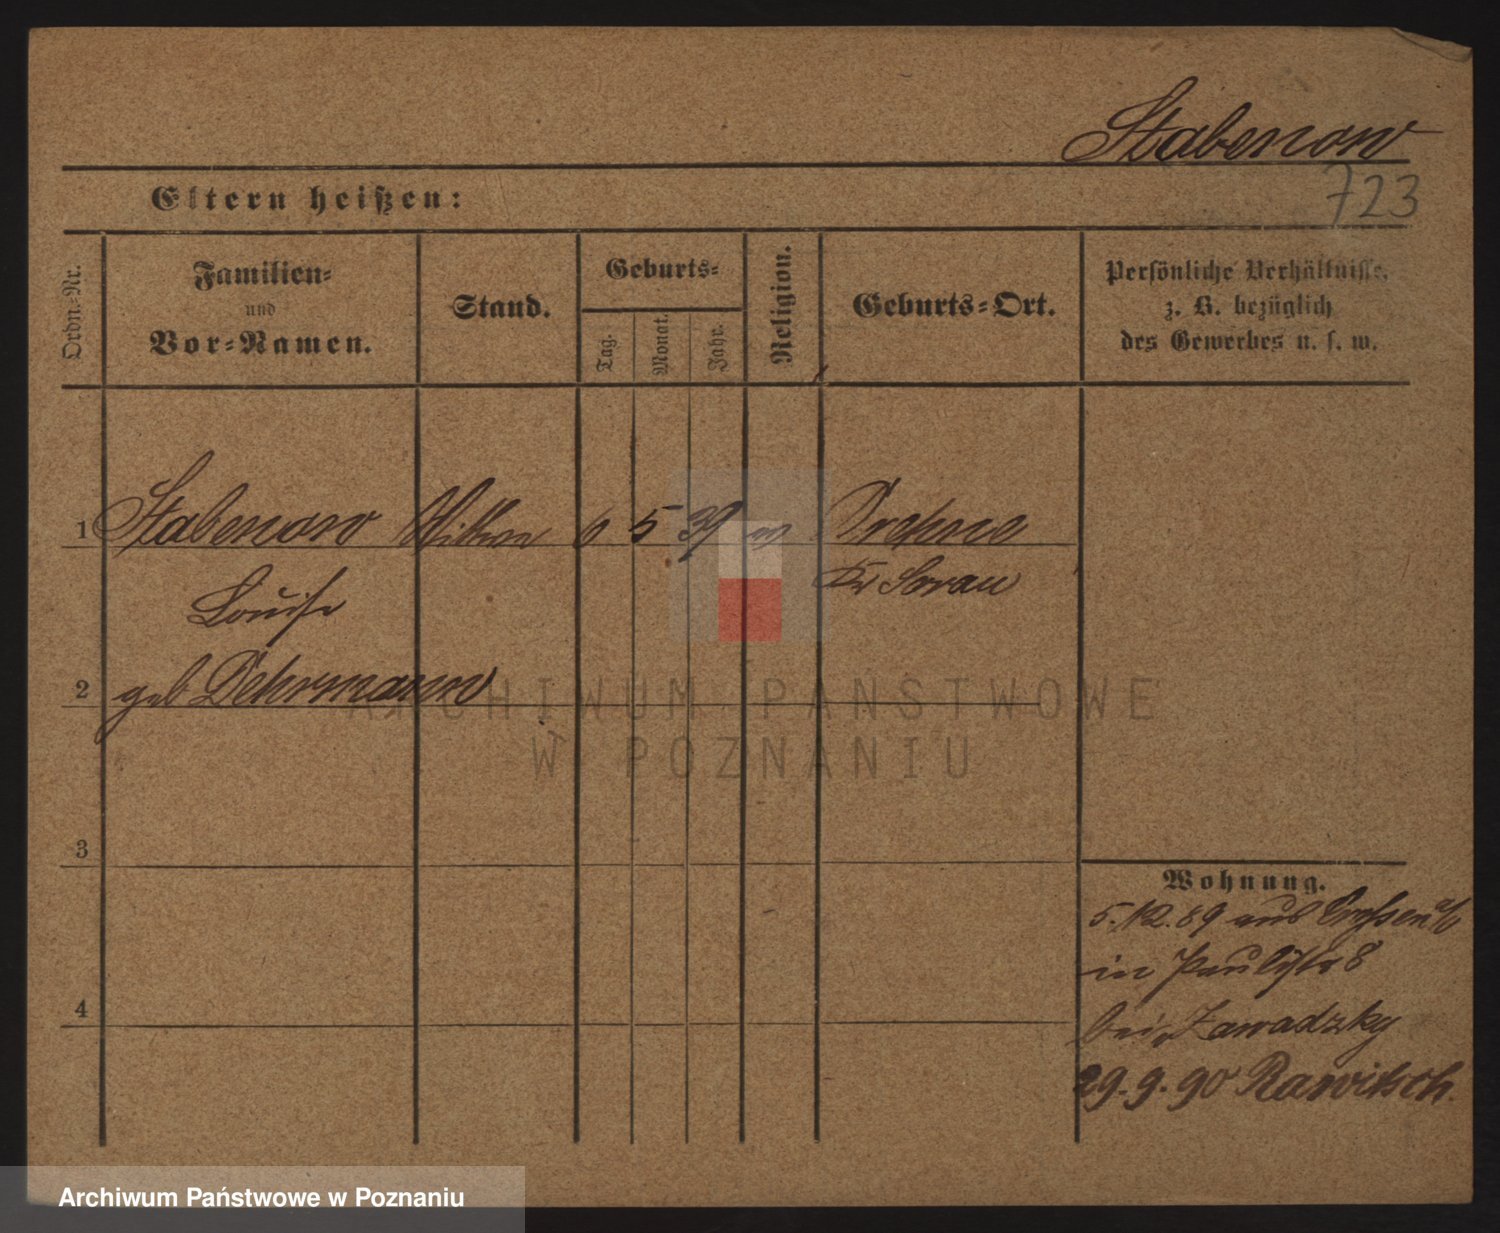 Stabenow
723
Eltern heißen:
Ordn.-Nr.
Familien-
und
Vor-Namen.
Stand.
Geburts-
Tag.
Monat.
Jahr.
Religion.
Geburts-Ort.
Persönliche Verhältnisse,
z. B. bezüglich
des Gewerbes u. s. w.
1 Stabenow 6 5 39
Kr Sorau
Louise
2 geb Dehrmann
ARCHIWUM PAŃSTWOWE
W POZNANIU
3
Wohnung.
5.12.89 aus Crossen a/O
in Paulistr 8
4
bei Zawadzky
29.9.90 Rawitsch.
Archiwum Państwowe w Poznaniu